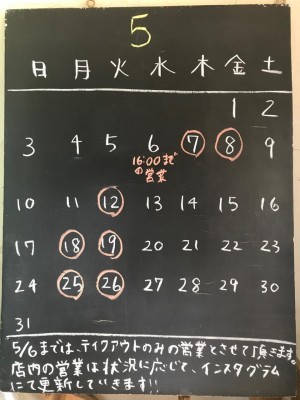 5
日 月 火 水 木 金 土
1 2
3 4 5 6 7 8 9
16:00まで
の営業
10 11 12 13 14 15 16
17 18 19 20 21 22 23
24 25 26 27 28 29 30
31
5/6までは、テイクアウトのみの営業とさせて頂きます。
店内の営業は状況に応じて、インスタグラム
にて更新していきます!!